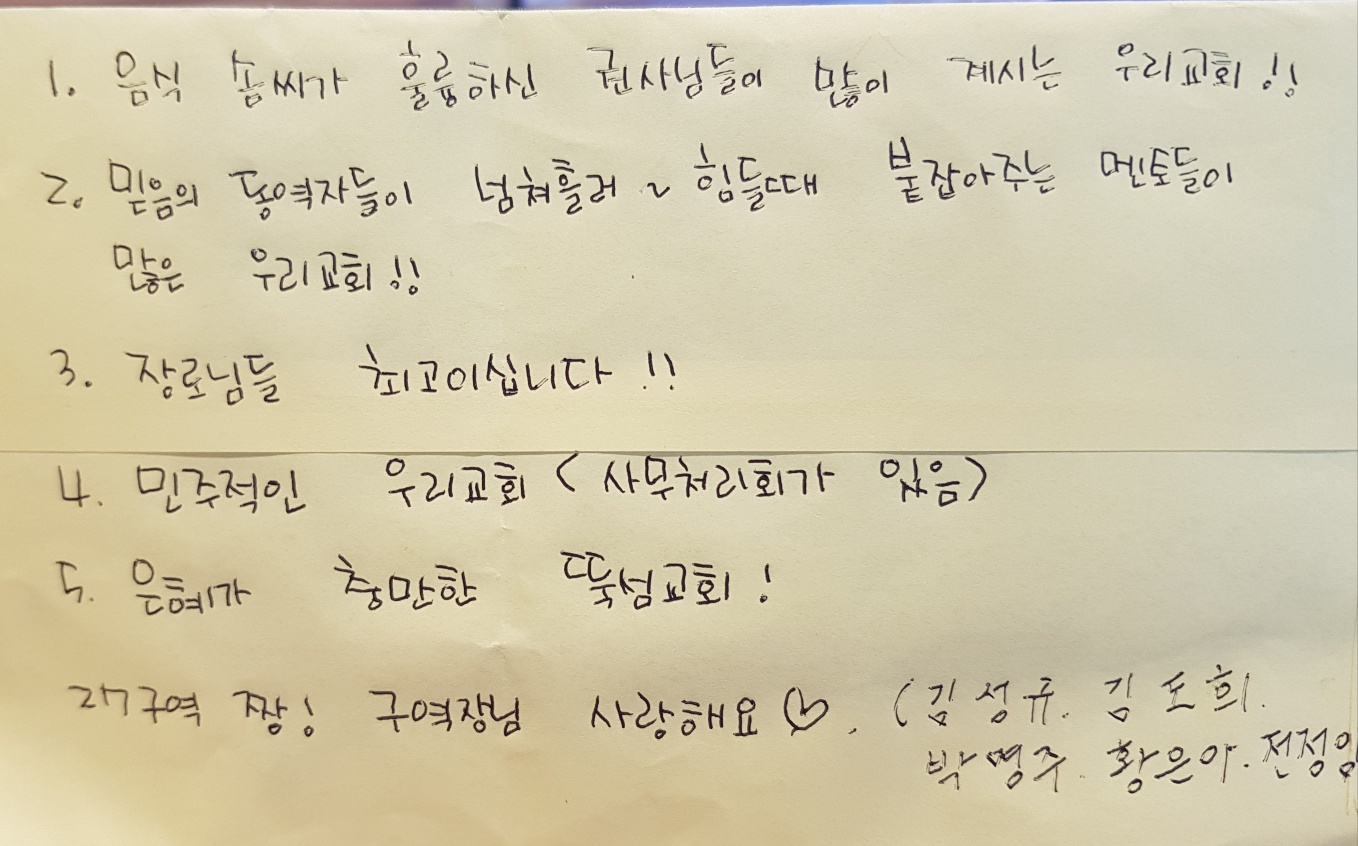 1. 음식 솜씨가 훌륭하신 권사님들이 많이 계시는 우리교회!!
2. 믿음의 동역자들이 넘쳐흘러~ 힘들때 붙잡아주는 멘토들이
많은 우리교회!!
3. 장로님들 최고이십니다!!
4. 민주적인 우리교회 (사무처리회가 있음)
5. 은혜가 충만한 뚝섬교회!
27구역 짱! 구역장님 사랑해요♡. (김성규. 김도희.
박명주. 황은아. 전정임